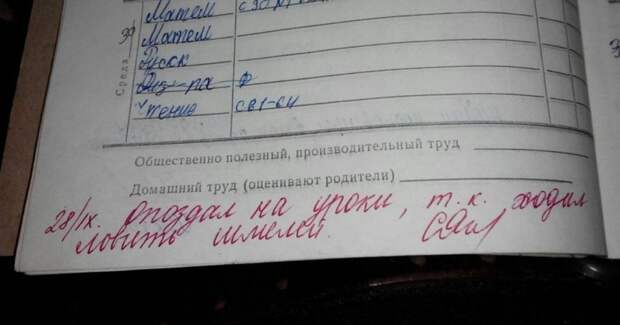 Матем
30 Матем
Среда
Русск
Физ-ра ф
Чтение с61-64
Общественно полезный, производительный труд
Домашний труд (оценивают родители)
28/IX. Опоздал на уроки, т.к. ходил
ловить шмелей.